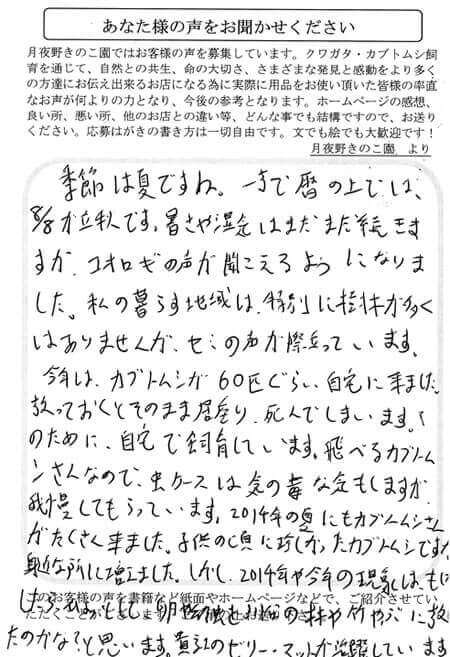 あなた様の声をお聞かせください
月夜野きのこ園ではお客様の声を募集しています。クワガタ・カブトムシ飼
育を通じて、自然との共生、命の大切さ、さまざまな発見と感動をより多く
の方達にお伝え出来るお店になる為に実際に用品をお使い頂いた皆様の率直
なお声が何よりの力となり、今後の参考となります。ホームページの感想、
良い所、悪い所、他のお店との違い等、どんな事でも結構ですので、お送り
ください。応募はがきの書き方は一切自由です。文でも絵でも大歓迎です！
月夜野きのこ園 より
季節は夏ですね。一方で暦の上では、
8/8が立秋です。暑さや湿気はまだまだ続きま
すが、コオロギの声が聞こえるようになりま
した。私の暮らす地域は、特別に樹林が多く
はありませんが、セミの声が際立っています。
今年は、カブトムシが60匹ぐらい、自宅に来ました。
放っておくとそのまま居座り、死んでしまいます。そ
のために、自宅で飼育しています。飛べるカブトム
シさんなので、虫ケースは気の毒な気もしますが
我慢してもらっています。2014年の夏にもカブトムシさん
がたくさん来ました。子供の頃に珍しかったカブトムシですが
身近な所に増えました。しかし、2014年や今年の現象は、もし
このお客様の声を書籍など紙面やホームページなどで、ご紹介させてい
たのかな？と思います。貴社のゼリー・マットが活躍しています